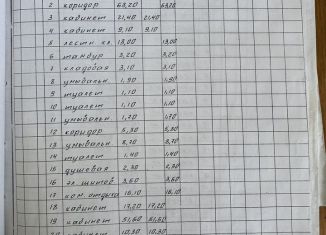 2 коридор 68,20 68,20
3 кабинет 21,40 21,40
4 кабинет 9,10 9,10
5 лестн кл. 13,00 13,00
6 тамбур 3,20 3,20
7 кладовая 3,10 3,10
8 умывальн. 1,90 1,90
9 туалет 1,10 1,10
10 туалет 1,10 1,10
11 умывальн 1,70
12 коридор 5,30
13 умывальн 8,70
14 туалет 1,40 1,40
15 душевая 2,30 2,30
16 эл. щитов 3,60 3,60
17 ком. отдыха 16,10 16,10
18 кабинет 17,20 17,20
19 кабинет 51,60 51,60
кабинет 10,30 10,30